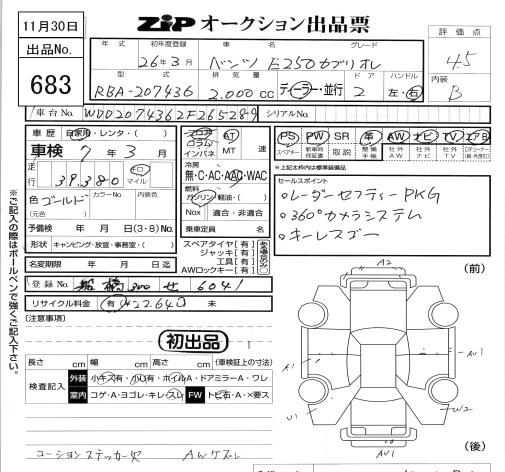 11月30日
ZiP オークション出品票
出品No.
683
年式 初年度登録 車名 グレード
26年3月 ベンツ E250カブリオレ
評価点
4.5
型式 排気量 ドア ハンドル
RBA-207436 2.000cc ディーラー・並行 2 左・右
内装
B
車台No. WDD2074362F265289 シリアルNo.
車歴 自家用・レンタ・( )
車検 7年3月
走行 39,380 キロ マイル
色 ゴールド カラーNo. 内装色
(元色)
予備検 年 月 日(3・8)No.
形状 キャンピング・放宣・事務室・( )
名変期限 年 月 日迄
登録No. 船橋 300 せ 6041
リサイクル料金 有 ¥22.640 未
フロア コラム インパネ AT MT 速
冷房
無・C・AC・AAC・WAC
燃料
ガソリン・軽油・( )
Nox 適合・非適合
乗車定員 名
スペアタイヤ[有]
ジャッキ[有]
工具[有]
AWロックキー[有]
PS PW SR 革 AW ナビ TV エアB
スペアキー 新車時保証書 取説 整備手帳 社外AW 社外ナビ 社外TV
*上記太枠内は標準装備品
セールスポイント
○レーダーセフティーPKG
○360°カメラシステム
○キーレスゴー
※ご記入の際はボールペンで強くご記入下さい。
[注意事項]
初出品
長さ cm 幅 cm 高さ cm (車検証上の寸法)
検査記入 外装 小キズ有・小凹有・ホイルA・ドアミラーA・ワレ
室内 コゲA・ヨゴレ・キレ・スレ FW トビ石A・×要ス
コーションステッカー欠 AWケズレ
(前)
A2
A1
AU1
U1
W2
AU1
(後)